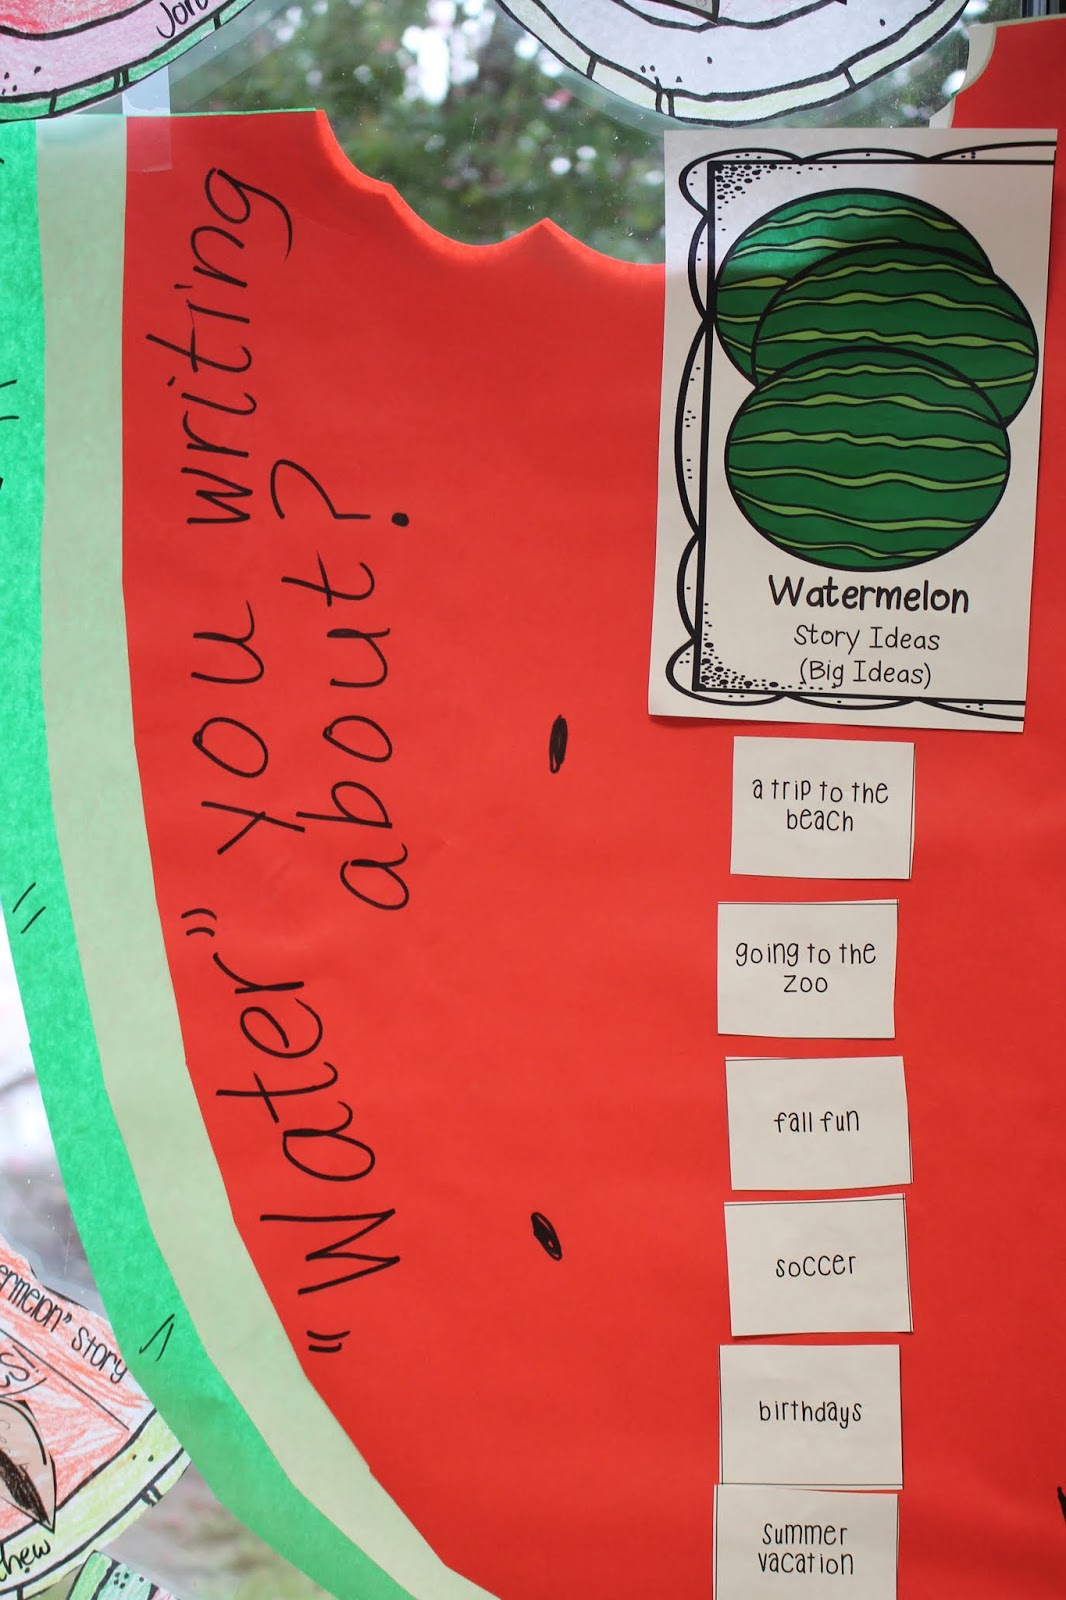 "Water" you writing
about?
Watermelon
Story Ideas
(Big Ideas)
a trip to the
beach
going to the
zoo
fall fun
soccer
birthdays
summer
vacation
story